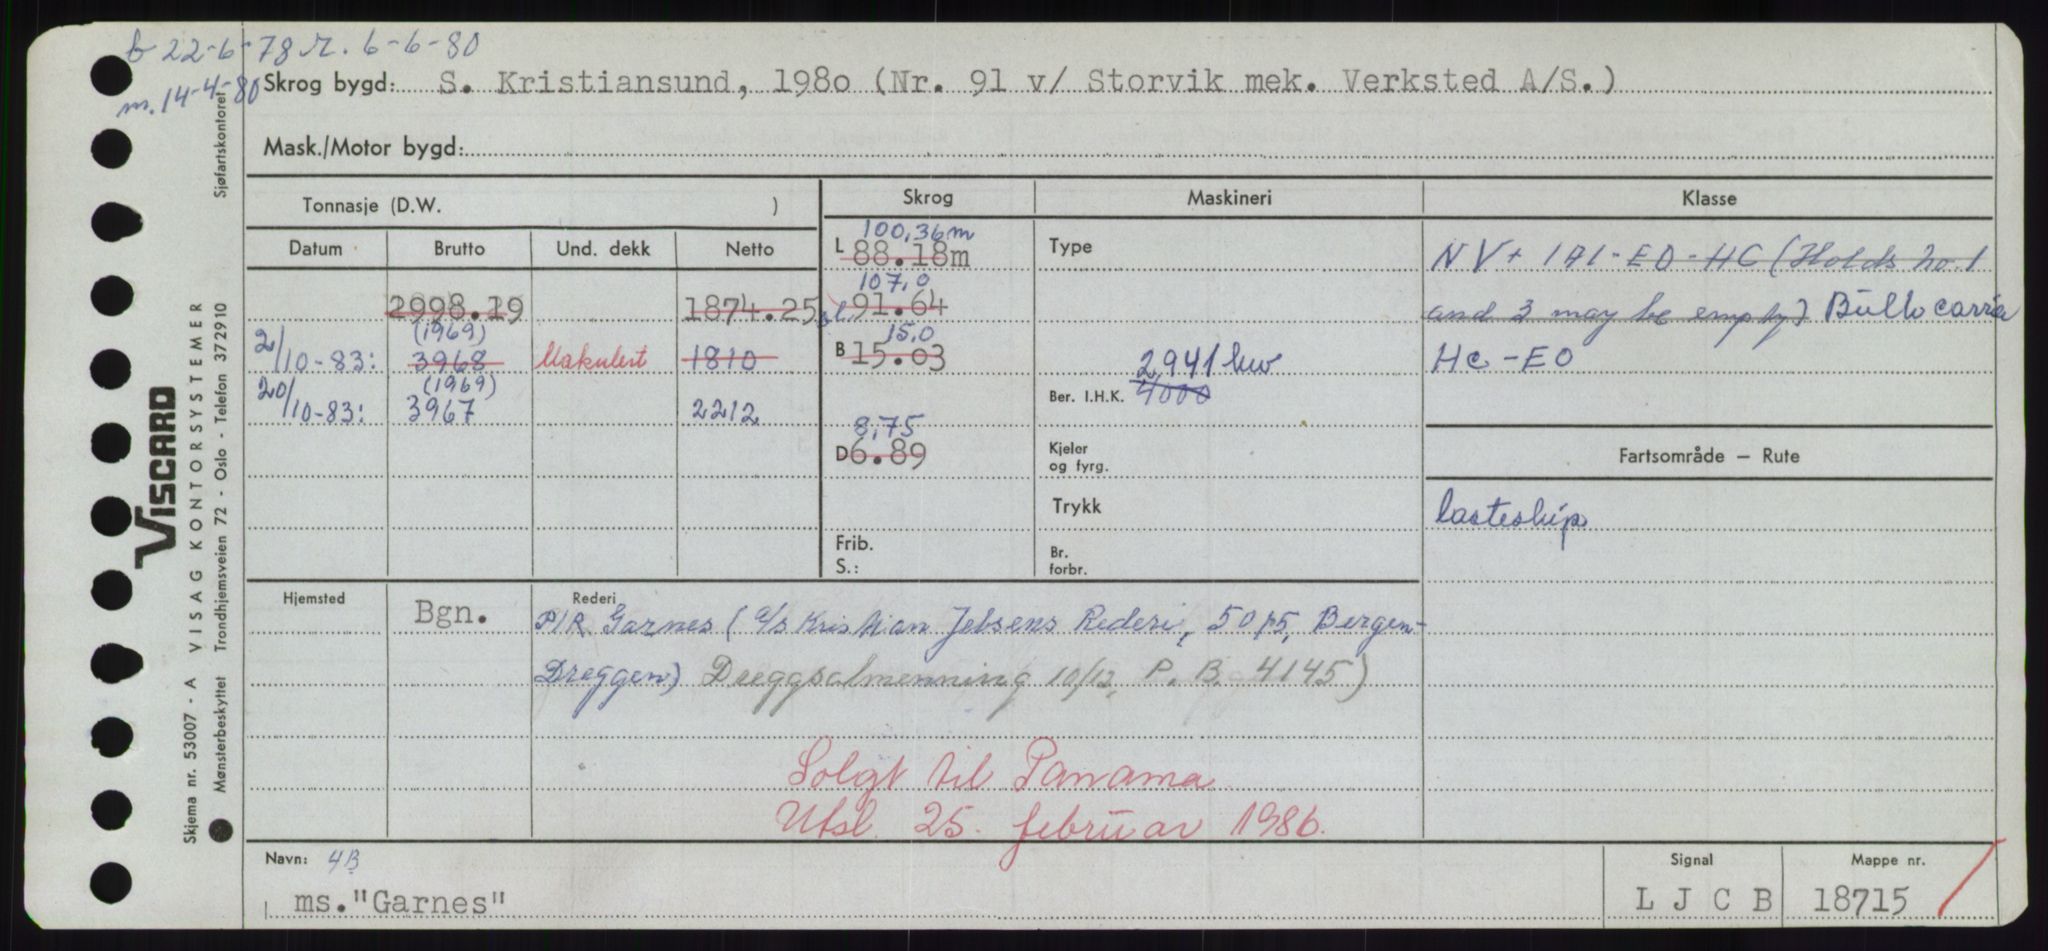 b 22-6-78 r. 6-6-80
m. 14-4-80
Skrog bygd: S. Kristiansund, 1980 (Nr. 91 v/ Storvik mek. Verksted A/S.)
Mask./Motor bygd:
Tonnasje (D.W. )
Skrog Maskineri Klasse
Datum Brutto Und. dekk Netto
100,36 m
L 88.18m
Type
NV + 1A1-EO-HC (Holds no. 1
107,0
2998.19 1874.25 91.64
and 3 may be empty) Bulk carrier
(1969)
15,0
2/10-83: 3968 Makulert 1810
B 15.03
2941 kw
HC-EO
(1969)
Ber. I.H.K. 4000
20/10-83: 3967 2212
8,75
D 6.89
Kjeler og fyrg.
Fartsområde — Rute
Trykk
lasteskip
Frib.
S.:
Br. forbr.
Hjemsted Bgn.
Rederi
P/R Garnes (A/S Kristian Jebsens Rederi, 5015, Bergen-
Dreggen) Dreggsalmenning 10/12, P. B. 4145)
Solgt til Panama.
Utsl. 25. februar 1986.
Navn: 4B
ms."Garnes"
Signal
L J C B
Mappe nr.
18715
VISCARD
Skjema nr. 53007 - A VISAG KONTORSYSTEMER
Mønsterbeskyttet Trondhjemsveien 72 - Oslo - Telefon 372910 Sjøfartskontoret